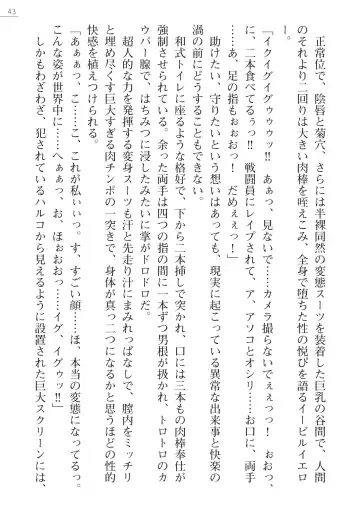 43
　正常位で、陰唇と菊穴、さらには半裸同然の変態スーツを装着した巨乳の谷間で、人間
のそれより二回りは大きい肉棒を咥えこみ、全身で堕ちた性の悦びを語るイービルイエロ
ー。
「イクイグイグゥゥッ‼　あぁっ、見ないで……カメラ撮らないでぇぇっっ！　おおっ、
に、二本食べてるぅっ‼　戦闘員にレイプされて、ア、アソコとオシリ……お口に、両手
……あ、足の指もぉぉおっ！　だめぇぇっ！」
　助けたい、守りたいという想いはあっても、現実に起こっている異常な出来事と快楽の
渦の前にどうすることもできない。
　和式トイレに座るような格好で、下から二本挿しで突かれ、口には三本もの肉棒奉仕が
強制させられている。余った両手は四つの指の間に一本ずつ男根が扱かれ、トロトロのカ
ウパー腺で、はちみつに浸したみたいに掌がドロドロだ。
　超人的な力を発揮する変身スーツも汗と先走り汁にまみれっぱなしで、膣内をミッチリ
と埋め尽くす巨大すぎる肉チンポの一突きで、身体が真っ二つになるかと思うほどの性的
快感を植えつけられる。
「あぁぁっ、こ……こ、これが私ぃぃっ。す、すごい顔……ほ、本当の変態になってるっ。
こんな姿が世界中に……へぁぁっ、お、ほぉおおっ……イグ、イグゥッ‼」
　しかもわざわざ、犯されているハルコから見えるように設置された巨大スクリーンには、